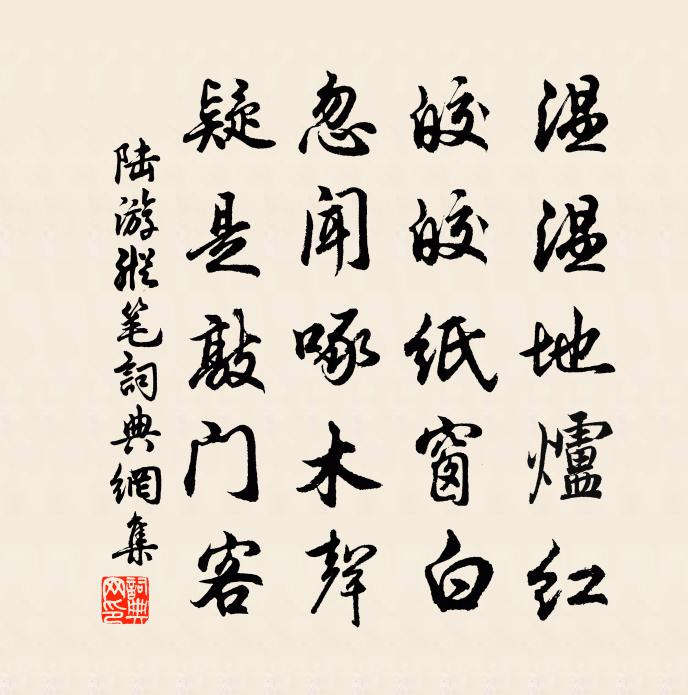 温温地爐紅
皎皎紙窗白
忽闻啄木聲
疑是敲门客
陆游縱笔詞典網集
詞典網印